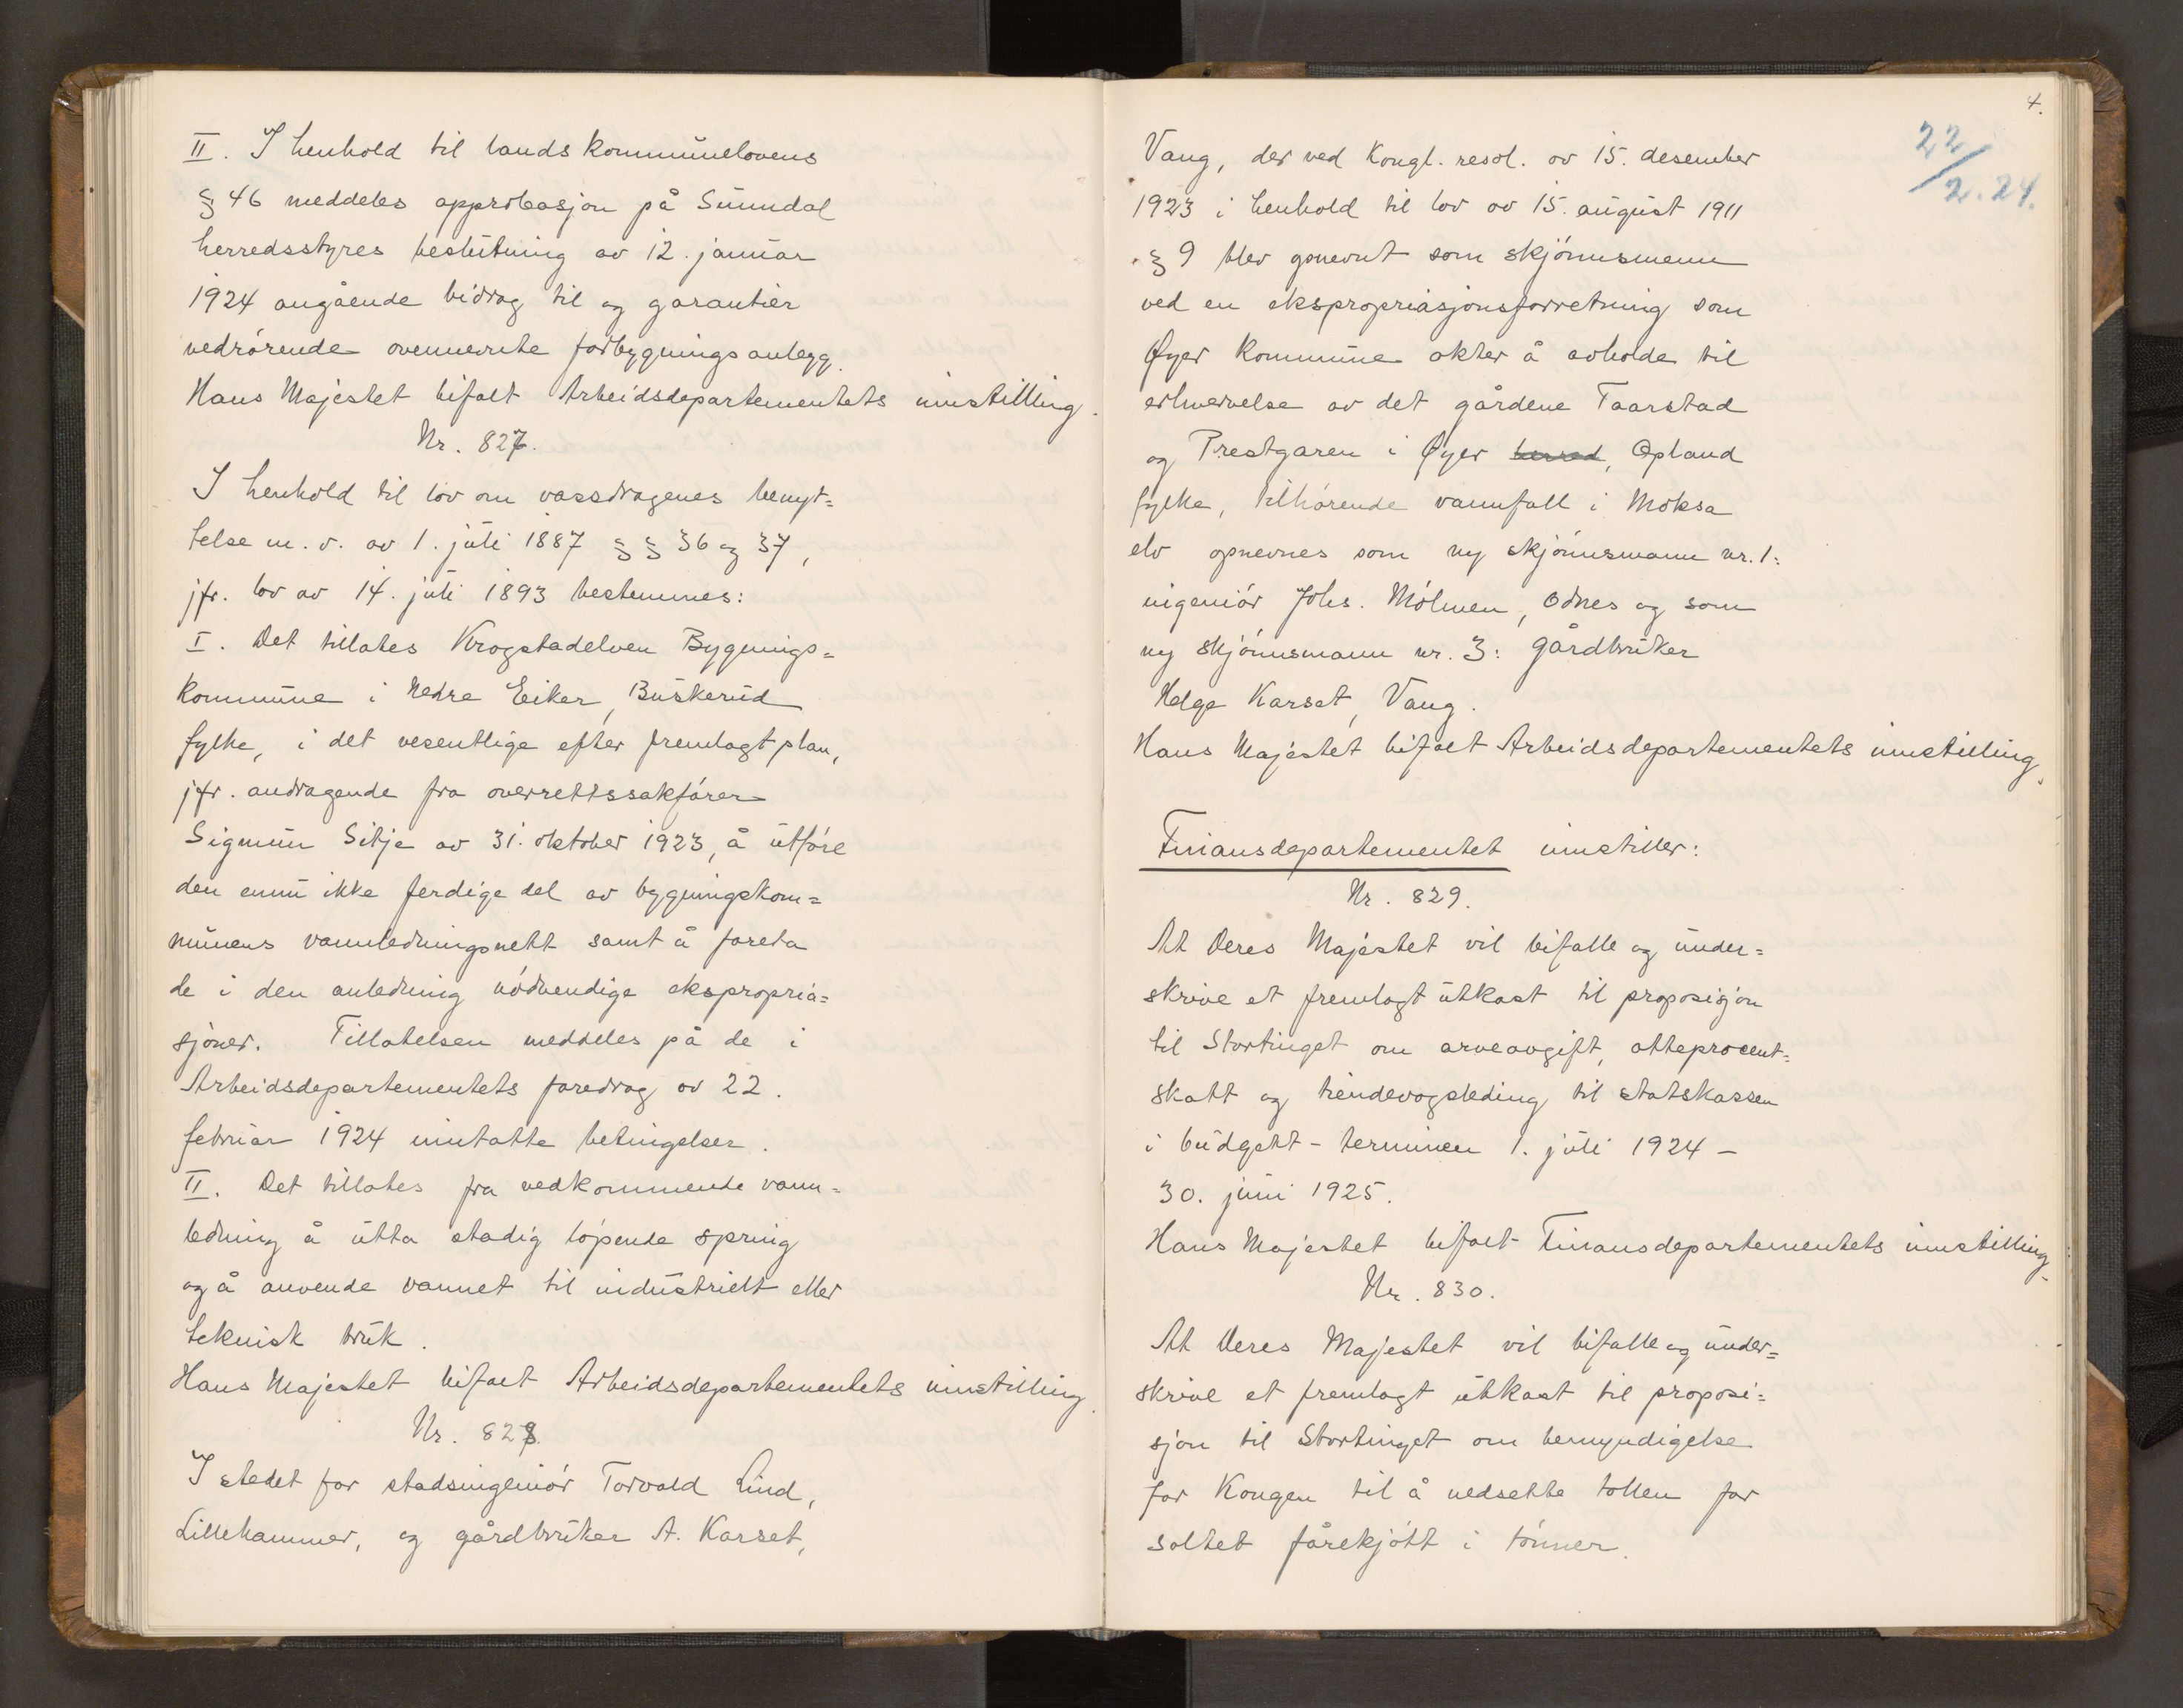 II. I henhold til landskommunelovens
§ 46 meddeles approbasjon på Sunndal
herredsstyres beslutning av 12. januar
1924 angående bidrag til og garantier
vedrørende ovennevnte forbygningsanlegg.
Hans Majestet bifalt Arbeidsdepartementets innstilling.
Nr. 827.
I henhold til lov om vassdragenes benyt=
telse m. v. av 1. juli 1887 §§ 36 og 37,
jfr. lov av 14. juli 1893 bestemmes:
I. Det tillates Krogstadelven Bygnings=
kommune i Nedre Eiker, Buskerud
fylke, i det vesentlige efter fremlagt plan,
jfr. andragende fra overrettssakfører
Sigmun Sitje av 31. oktober 1923, å utføre
den ennu ikke ferdige del av bygningskom=
munens vannledningsnett samt å foreta
de i den anledning nødvendige ekspropria=
sjoner. Tillatelsen meddeles på de i
Arbeidsdepartementets foredrag av 22.
februar 1924 inntatte betingelser.
II. Det tillates fra vedkommende vann=
ledning å utta stadig løpende spring
og å anvende vannet til industrielt eller
teknisk bruk.
Hans Majestet bifalt Arbeidsdepartementets innstilling.
Nr. 828.
I stedet for stadsingeniør Torvald Lind,
Lillehammer, og gårdbruker A. Karset,
4.
22/2.24.
Vang, der ved Kongl. resol. av 15. desember
1923 i henhold til lov av 15. august 1911
§ 9 blev opnevnt som skjønnsmenn
ved en ekspropriasjonsforretning som
Øyer kommune akter å avholde til
erhvervelse av det gårdene Taarstad
og Prestgaren i Øyer herred, Opland
fylke, tilhørende vannfall i Moksa
elv opnevnes som ny skjønnsmann nr. 1:
ingeniør Johs. Mølmen, Odnes og som
ny skjønnsmann nr. 3: gårdbruker
Helge Karset, Vang.
Hans Majestet bifalt Arbeidsdepartementets innstilling.
Finansdepartementet innstiller:
Nr. 829.
At Deres Majestet vil bifalle og under=
skrive et fremlagt utkast til proposisjon
til Stortinget om arveavgift, atteprocent=
skatt og tiendevogsleding til statskassen
i budgett-terminen 1. juli 1924 –
30. juni 1925.
Hans Majestet bifalt Finansdepartementets innstilling.
Nr. 830.
At Deres Majestet vil bifalle og under=
skrive et fremlagt utkast til proposi=
sjon til Stortinget om bemyndigelse
for Kongen til å nedsette tollen for
saltet fårekjøtt i tønner.